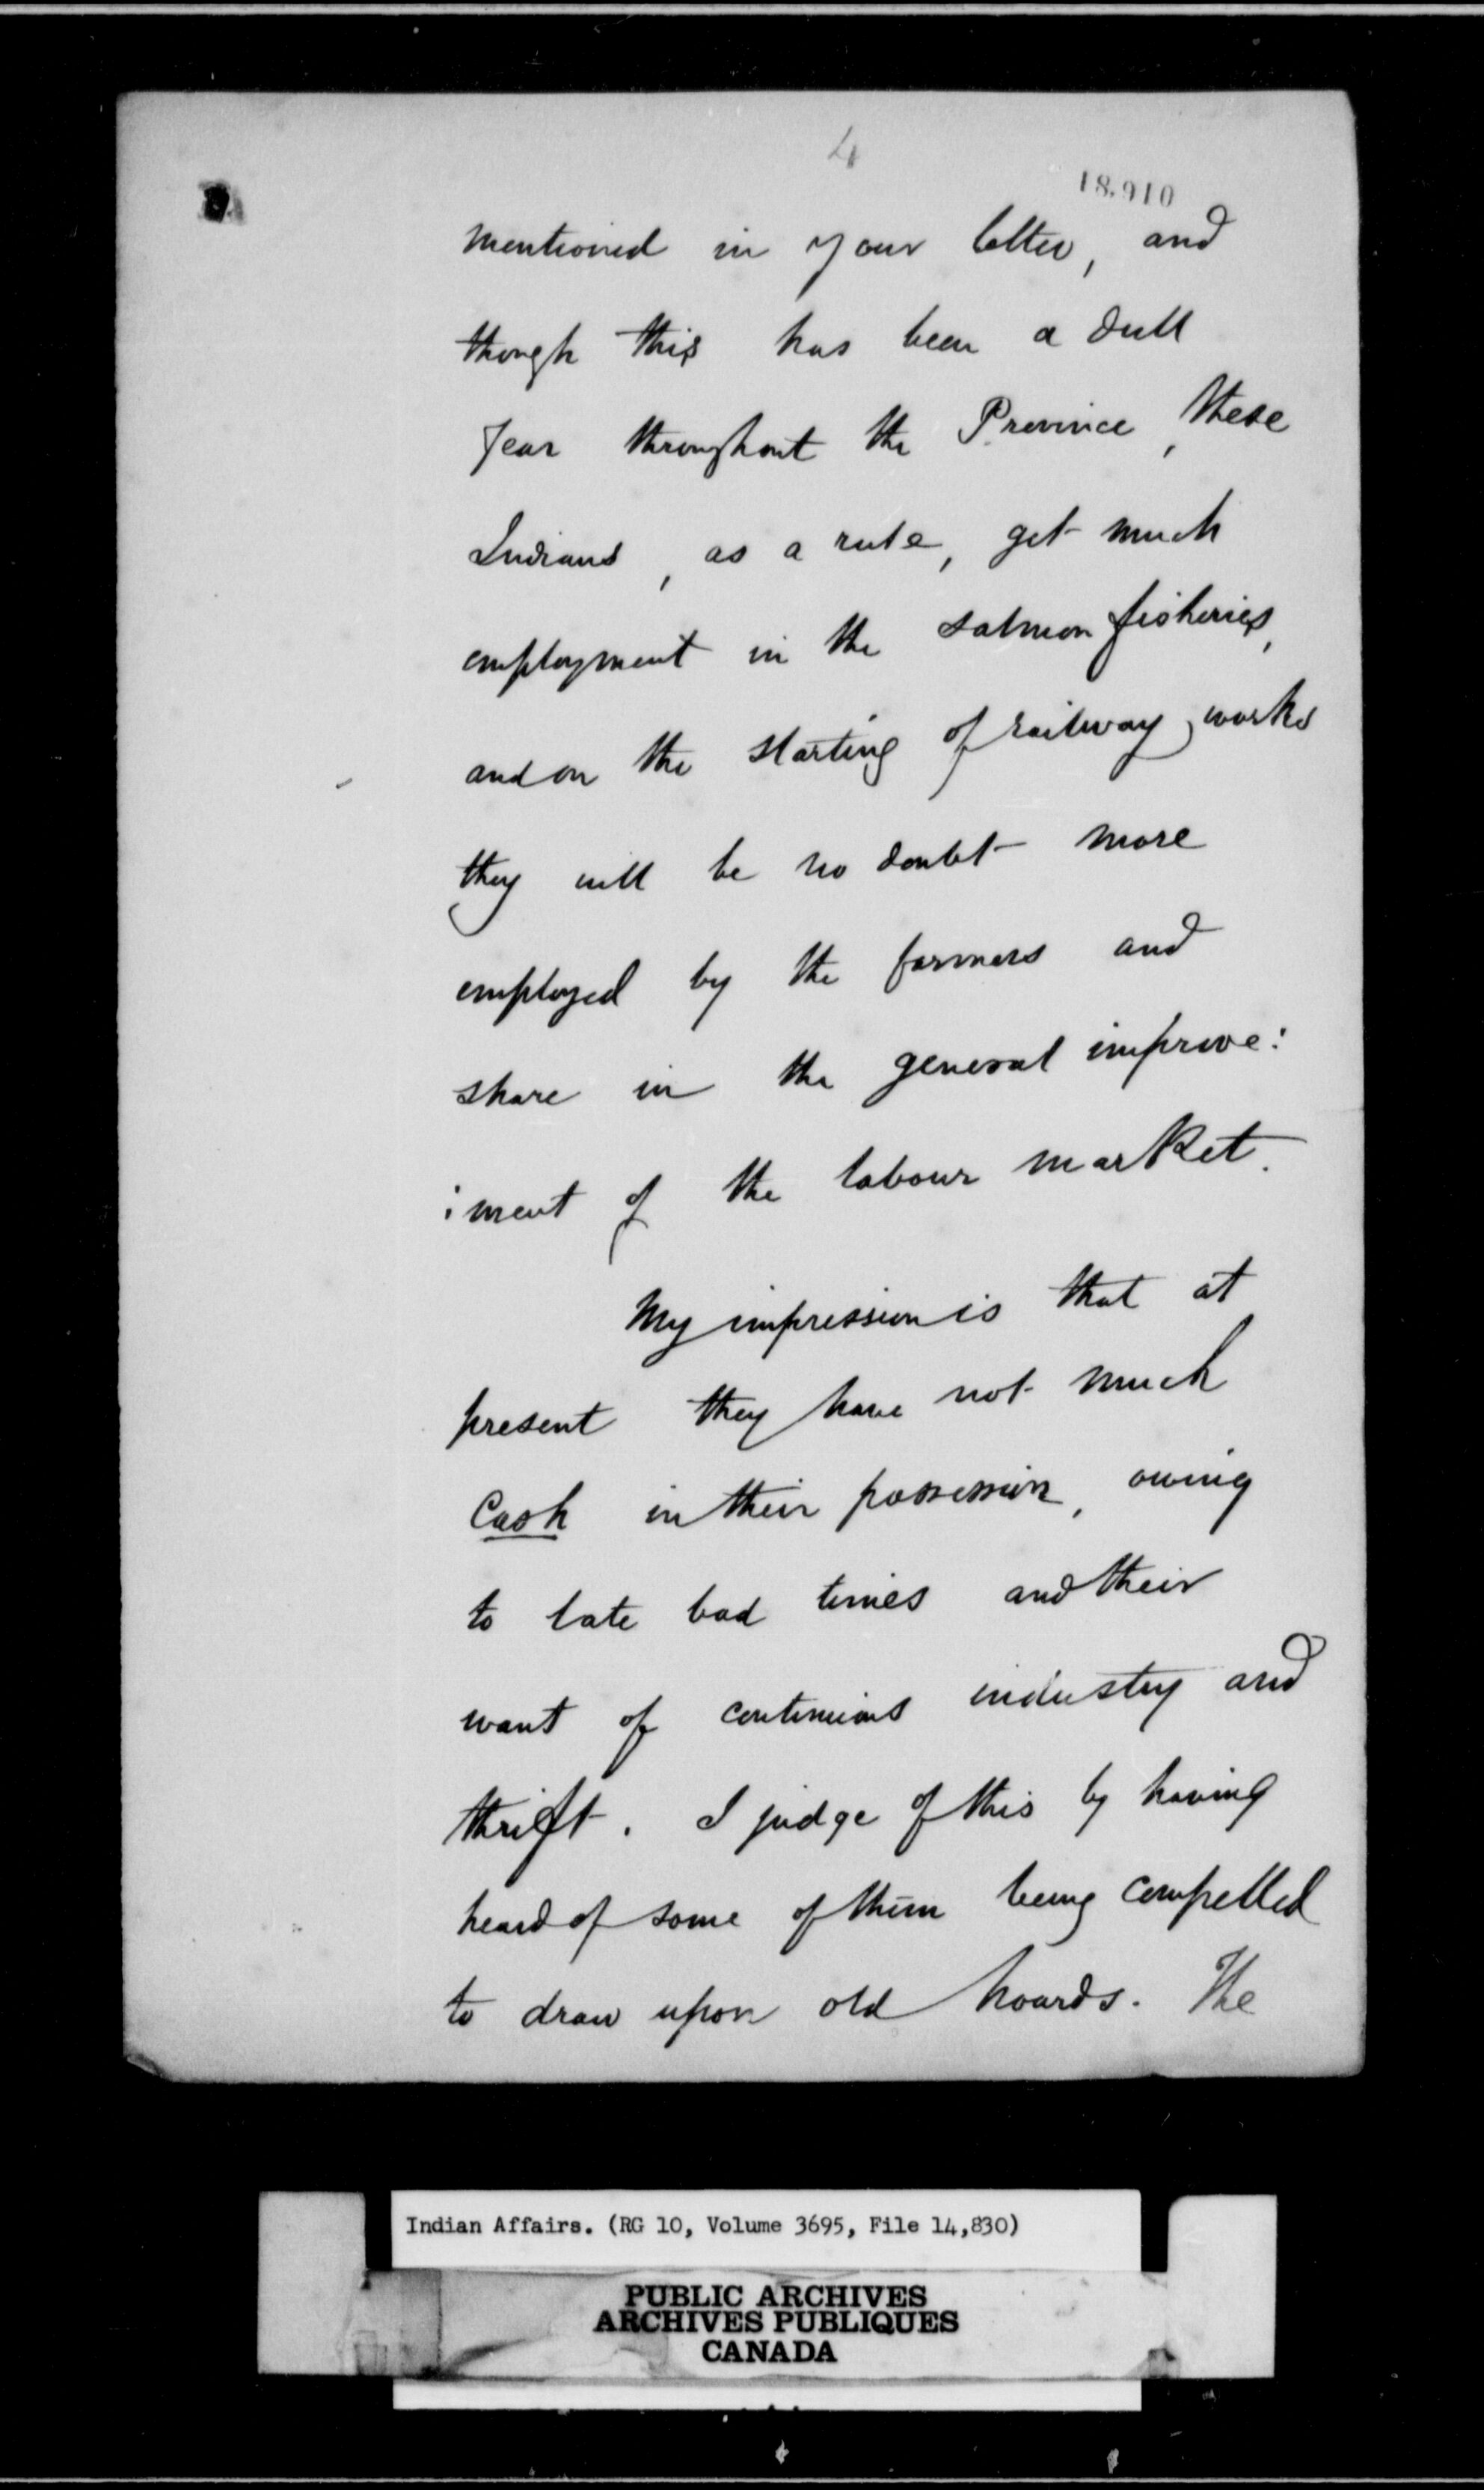 4
18.910
mentioned in your letter, and
though this has been a dull
year throughout the Province, these
Indians, as a rule, get much
employment in the salmon fisheries,
and on the starting of railway works
they will be no doubt more
employed by the farmers and
share in the general improve:
:ment of the labour market.
My impression is that at
present they have not much
Cash in their possession, owing
to late bad times and their
want of continuous industry and
thrift. I judge of this by having
heard of some of them being compelled
to draw upon old hoards. The
Indian Affairs. (RG 10, Volume 3695, File 14,830)
PUBLIC ARCHIVES
ARCHIVES PUBLIQUES
CANADA